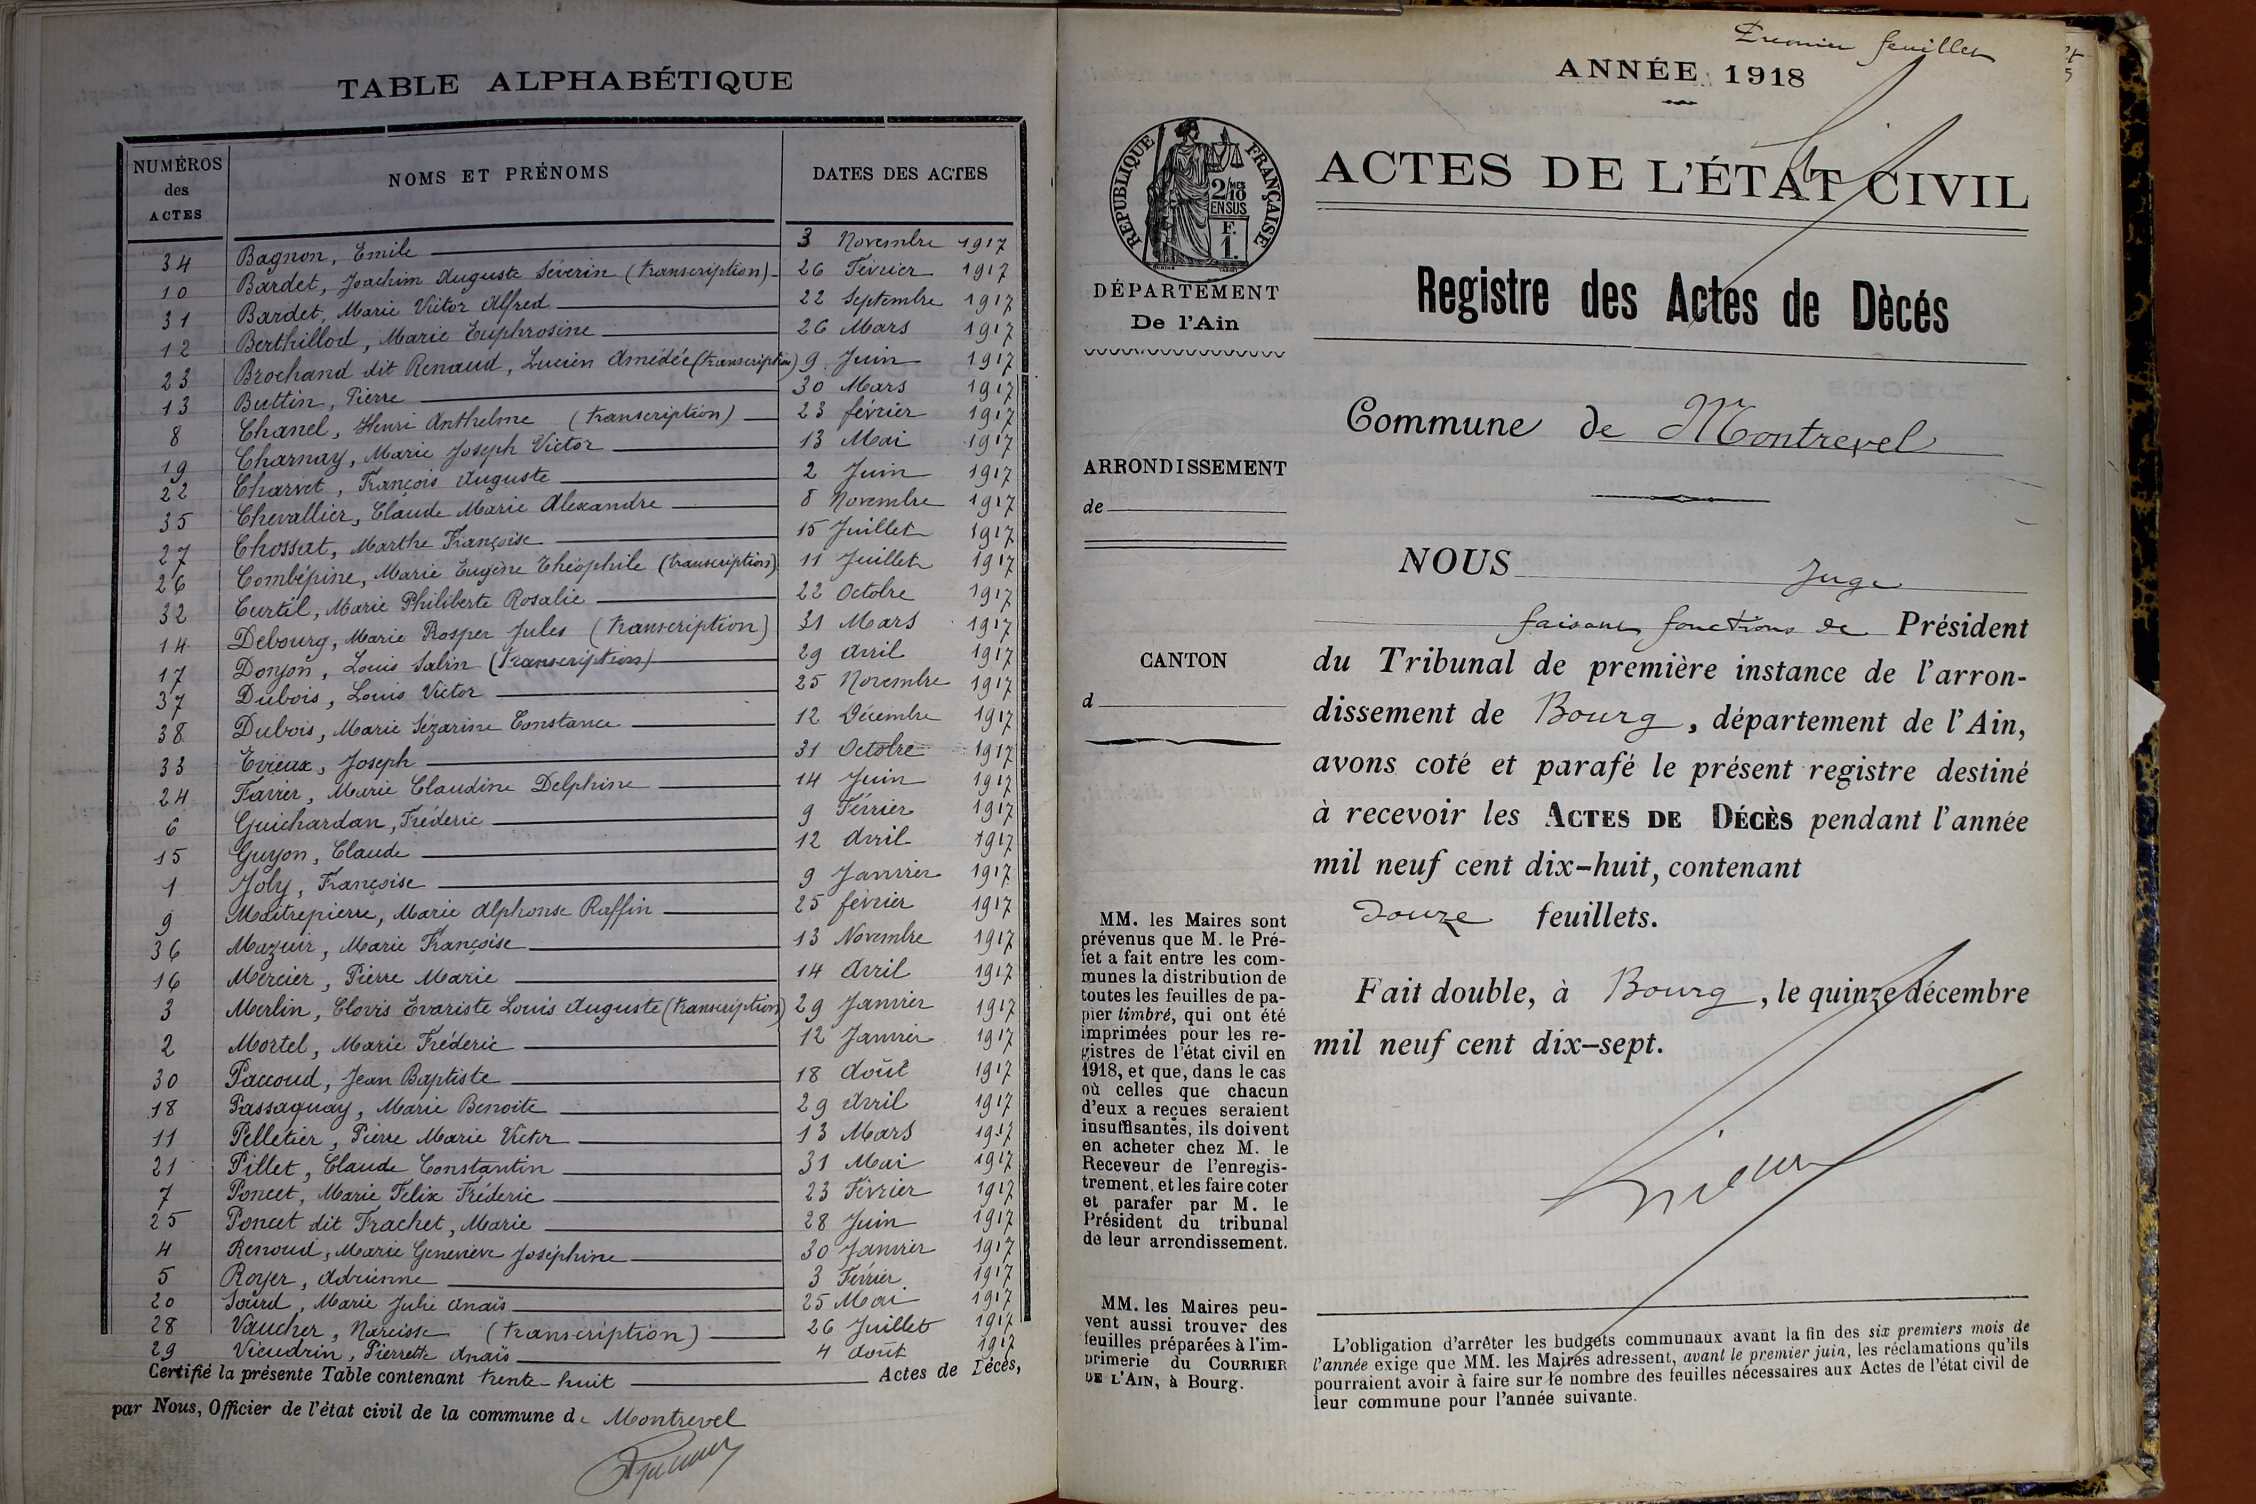 TABLE ALPHABÉTIQUE
NUMÉROS des ACTES NOMS ET PRÉNOMS DATES DES ACTES
34 Bagnon, Emile 3 Novembre 1917
10 Bardet, Joachim Auguste Séverin (transcription) 26 Février 1917
31 Bardet, Marie Victor Alfred 22 Septembre 1917
12 Berthillod, Marie Euphrosine 26 Mars 1917
23 Brochand dit Renaud, Lucien Amédée (transcription) 9 Juin 1917
13 Buttin, Pierre 30 Mars 1917
8 Chanel, Henri Anthelme (transcription) 23 février 1917
19 Charnay, Marie Joseph Victor 13 Mai 1917
22 Charvet, François Auguste 2 Juin 1917
35 Chevallier, Claude Marie Alexandre 8 Novembre 1917
27 Chossat, Marthe Françoise 15 Juillet 1917
26 Combépine, Marie Eugène Théophile (transcription) 11 Juillet 1917
32 Curtil, Marie Philiberte Rosalie 22 Octobre 1917
14 Debourg, Marie Prosper Jules (transcription) 31 Mars 1917
17 Donjon, Louis Salin (transcription) 29 Avril 1917
37 Dubois, Louis Victor 25 Novembre 1917
38 Dubois, Marie Sézarine Constance 12 Décembre 1917
33 Evieux, Joseph 31 Octobre 1917
24 Favier, Marie Claudine Delphine 14 Juin 1917
6 Guichardan, Fréderic 9 Février 1917
15 Guyon, Claude 12 Avril 1917
1 Joly, Françoise 9 Janvier 1917
9 Maitrepierre, Marie Alphonse Raffin 25 février 1917
36 Mazuir, Marie Françoise 13 Novembre 1917
16 Mercier, Pierre Marie 14 Avril 1917
3 Merlin, Clovis Evariste Louis Auguste (transcription) 29 Janvier 1917
2 Mortel, Marie Fréderic 12 Janvier 1917
30 Paccoud, Jean Baptiste 18 Août 1917
18 Passaquay, Marie Benoite 29 Avril 1917
11 Pelletier, Pierre Marie Victor 13 Mars 1917
21 Pillet, Claude Constantin 31 Mai 1917
7 Poncet, Marie Felix Fréderic 23 Février 1917
25 Poncet dit Trachet, Marie 28 Juin 1917
4 Renoud, Marie Geneviève Joséphine 30 Janvier 1917
5 Royer, Adrienne 3 Février 1917
20 Sourd, Marie Julie Anaïs 25 Mai 1917
28 Vaucher, Narcisse (transcription) 26 Juillet 1917
29 Vieudrin, Pierrette Anaïs 4 Août 1917
Certifié la présente Table contenant trente-huit Actes de Décès,
par Nous, Officier de l'état civil de la commune de Montrevel
Premier feuillet
ANNÉE 1918
RÉPUBLIQUE FRANÇAISE
2/10 MES
EN SUS
F.
1.
DÉPARTEMENT
De l'Ain
ARRONDISSEMENT
de
CANTON
d
MM. les Maires sont
prévenus que M. le Pré-
fet a fait entre les com-
munes la distribution de
toutes les feuilles de pa-
pier timbré, qui ont été
imprimées pour les re-
gistres de l'état civil en
1918, et que, dans le cas
où celles que chacun
d'eux a reçues seraient
insuffisantes, ils doivent
en acheter chez M. le
Receveur de l'enregis-
trement, et les faire coter
et parafer par M. le
Président du tribunal
de leur arrondissement.
MM. les Maires peu-
vent aussi trouver des
feuilles préparées à l'im-
primerie du COURRIER
DE L'AIN, à Bourg.
ACTES DE L'ÉTAT CIVIL
Registre des Actes de Dècés
Commune de Montrevel
NOUS Juge
faisant fonctions de Président
du Tribunal de première instance de l'arron-
dissement de Bourg, département de l'Ain,
avons coté et parafé le présent registre destiné
à recevoir les ACTES DE DÉCÈS pendant l'année
mil neuf cent dix-huit, contenant
douze feuillets.
Fait double, à Bourg, le quinze décembre
mil neuf cent dix-sept.
L'obligation d'arrêter les budgets communaux avant la fin des six premiers mois de
l'année exige que MM. les Maires adressent, avant le premier juin, les réclamations qu'ils
pourraient avoir à faire sur le nombre des feuilles nécessaires aux Actes de l'état civil de
leur commune pour l'année suivante.